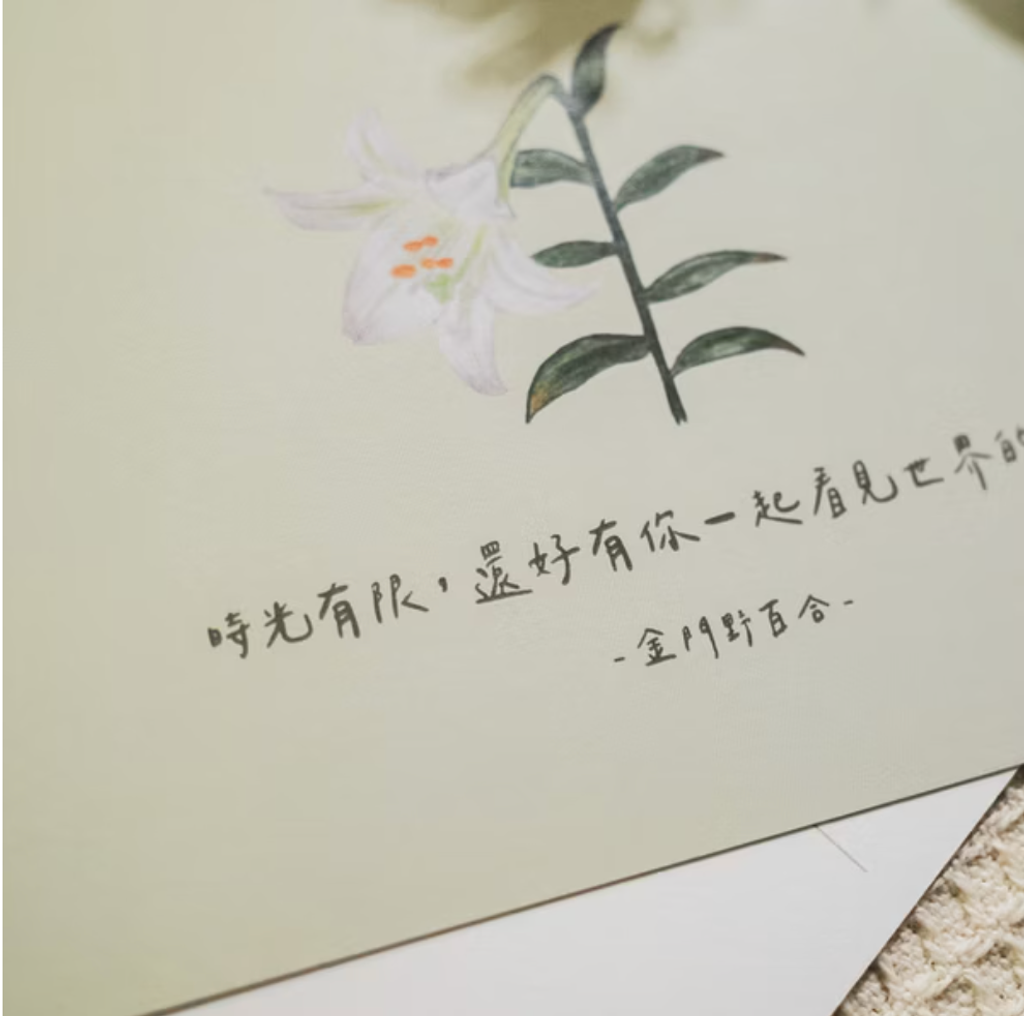 時光有限，還好有你一起看見世界的
-金門野百合-